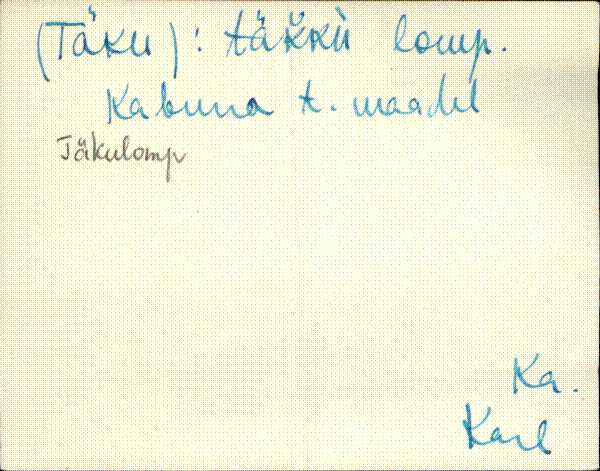 (Täku): täkkù lomp.
Kabuna t. maadel
Täkulomp
Ka.
Karl